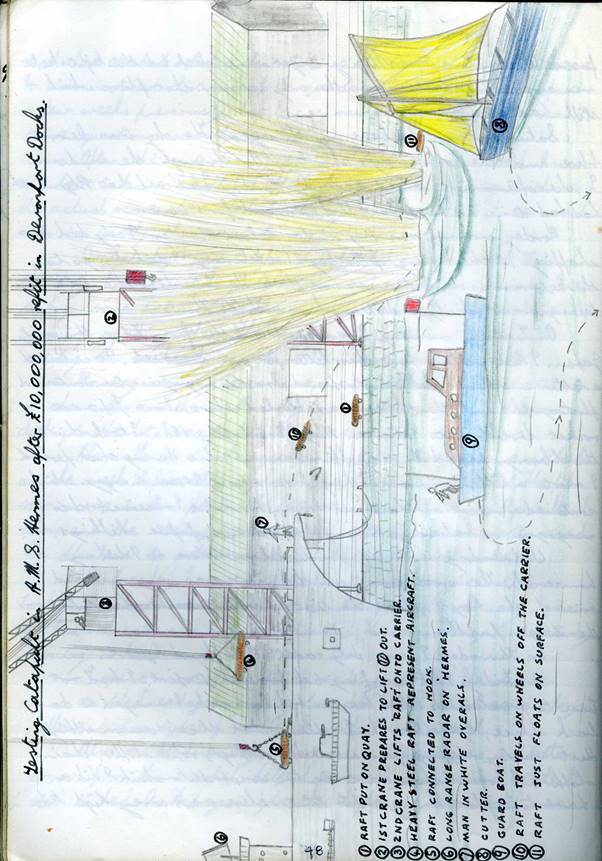 Testing Catapult in H.M.S. Hermes after £10,000,000 refit in Devonport Docks.
③
②
⑥
⑤
④
⑦
⑩
⑪
⑪
⑨
⑧
48
① RAFT PUT ON QUAY.
② 1ST CRANE PREPARES TO LIFT ⑪ OUT.
③ 2ND CRANE LIFTS RAFT ONTO CARRIER.
④ HEAVY STEEL RAFT REPRESENT AIRCRAFT.
⑤ RAFT CONNECTED TO HOOK.
⑥ LONG RANGE RADAR ON 'HERMES'.
⑦ MAN IN WHITE OVERALS.
⑧ CUTTER.
⑨ GUARD BOAT.
⑩ RAFT TRAVELS ON WHEELS OFF THE CARRIER.
⑪ RAFT JUST FLOATS ON SURFACE.